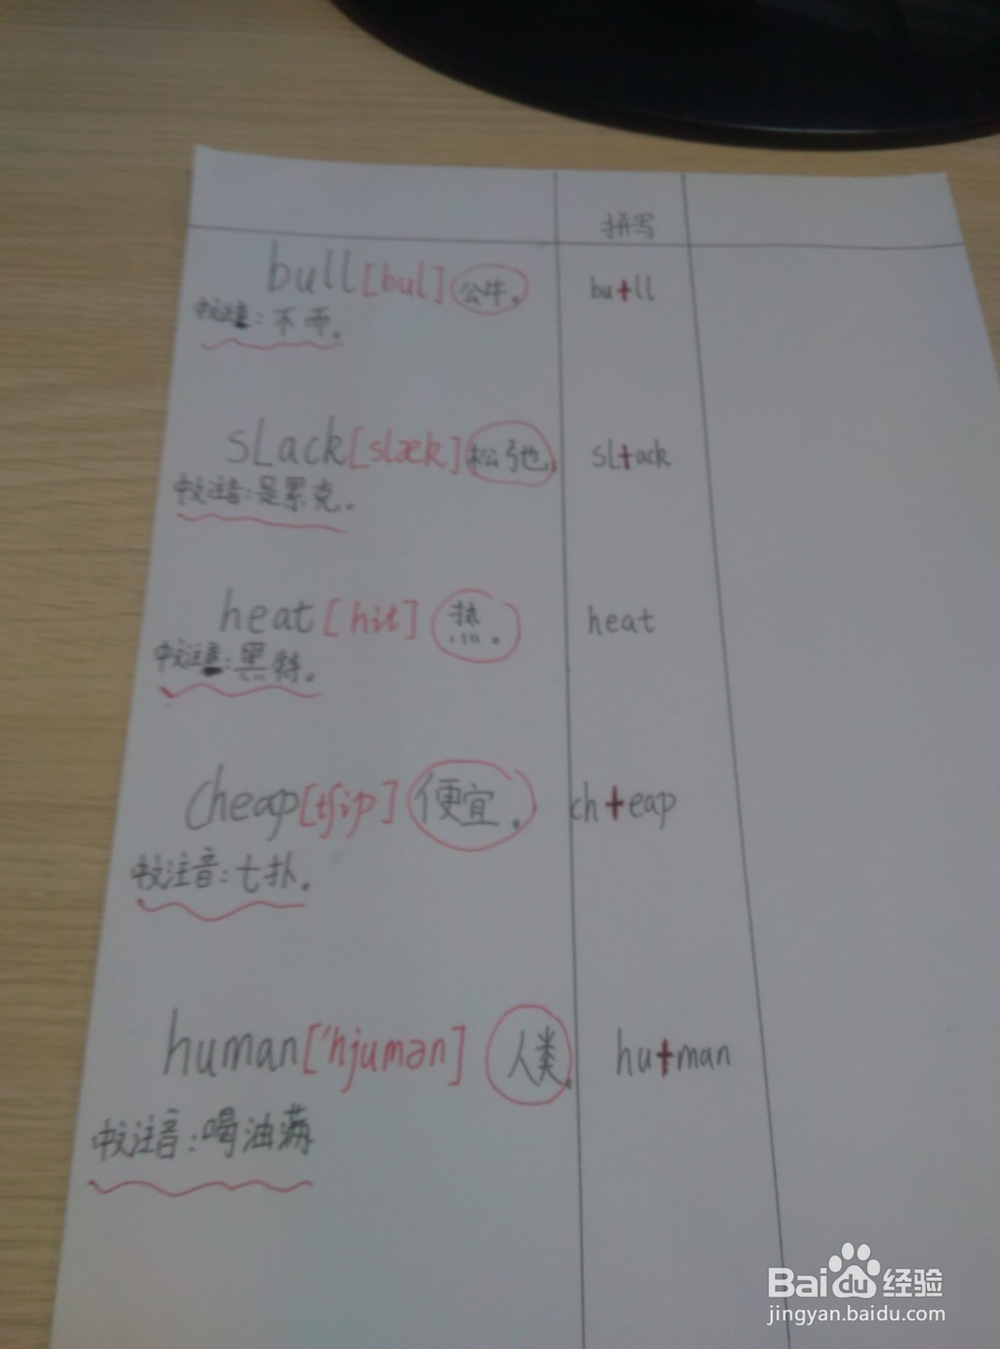 拼写
bull[bul] 公牛。 bu+ll
中文注音：不而。
sLack[slæk] 松弛。 sL+ack
中文注音：是累克。
heat[hit] 热。 heat
中文注音：黑特。
cheap[tʃip] 便宜。 ch+eap
中文注音：七扑。
human['hjumən] 人类。 hu+man
中文注音：喝油满
Baidu经验
jingyan.baidu.com